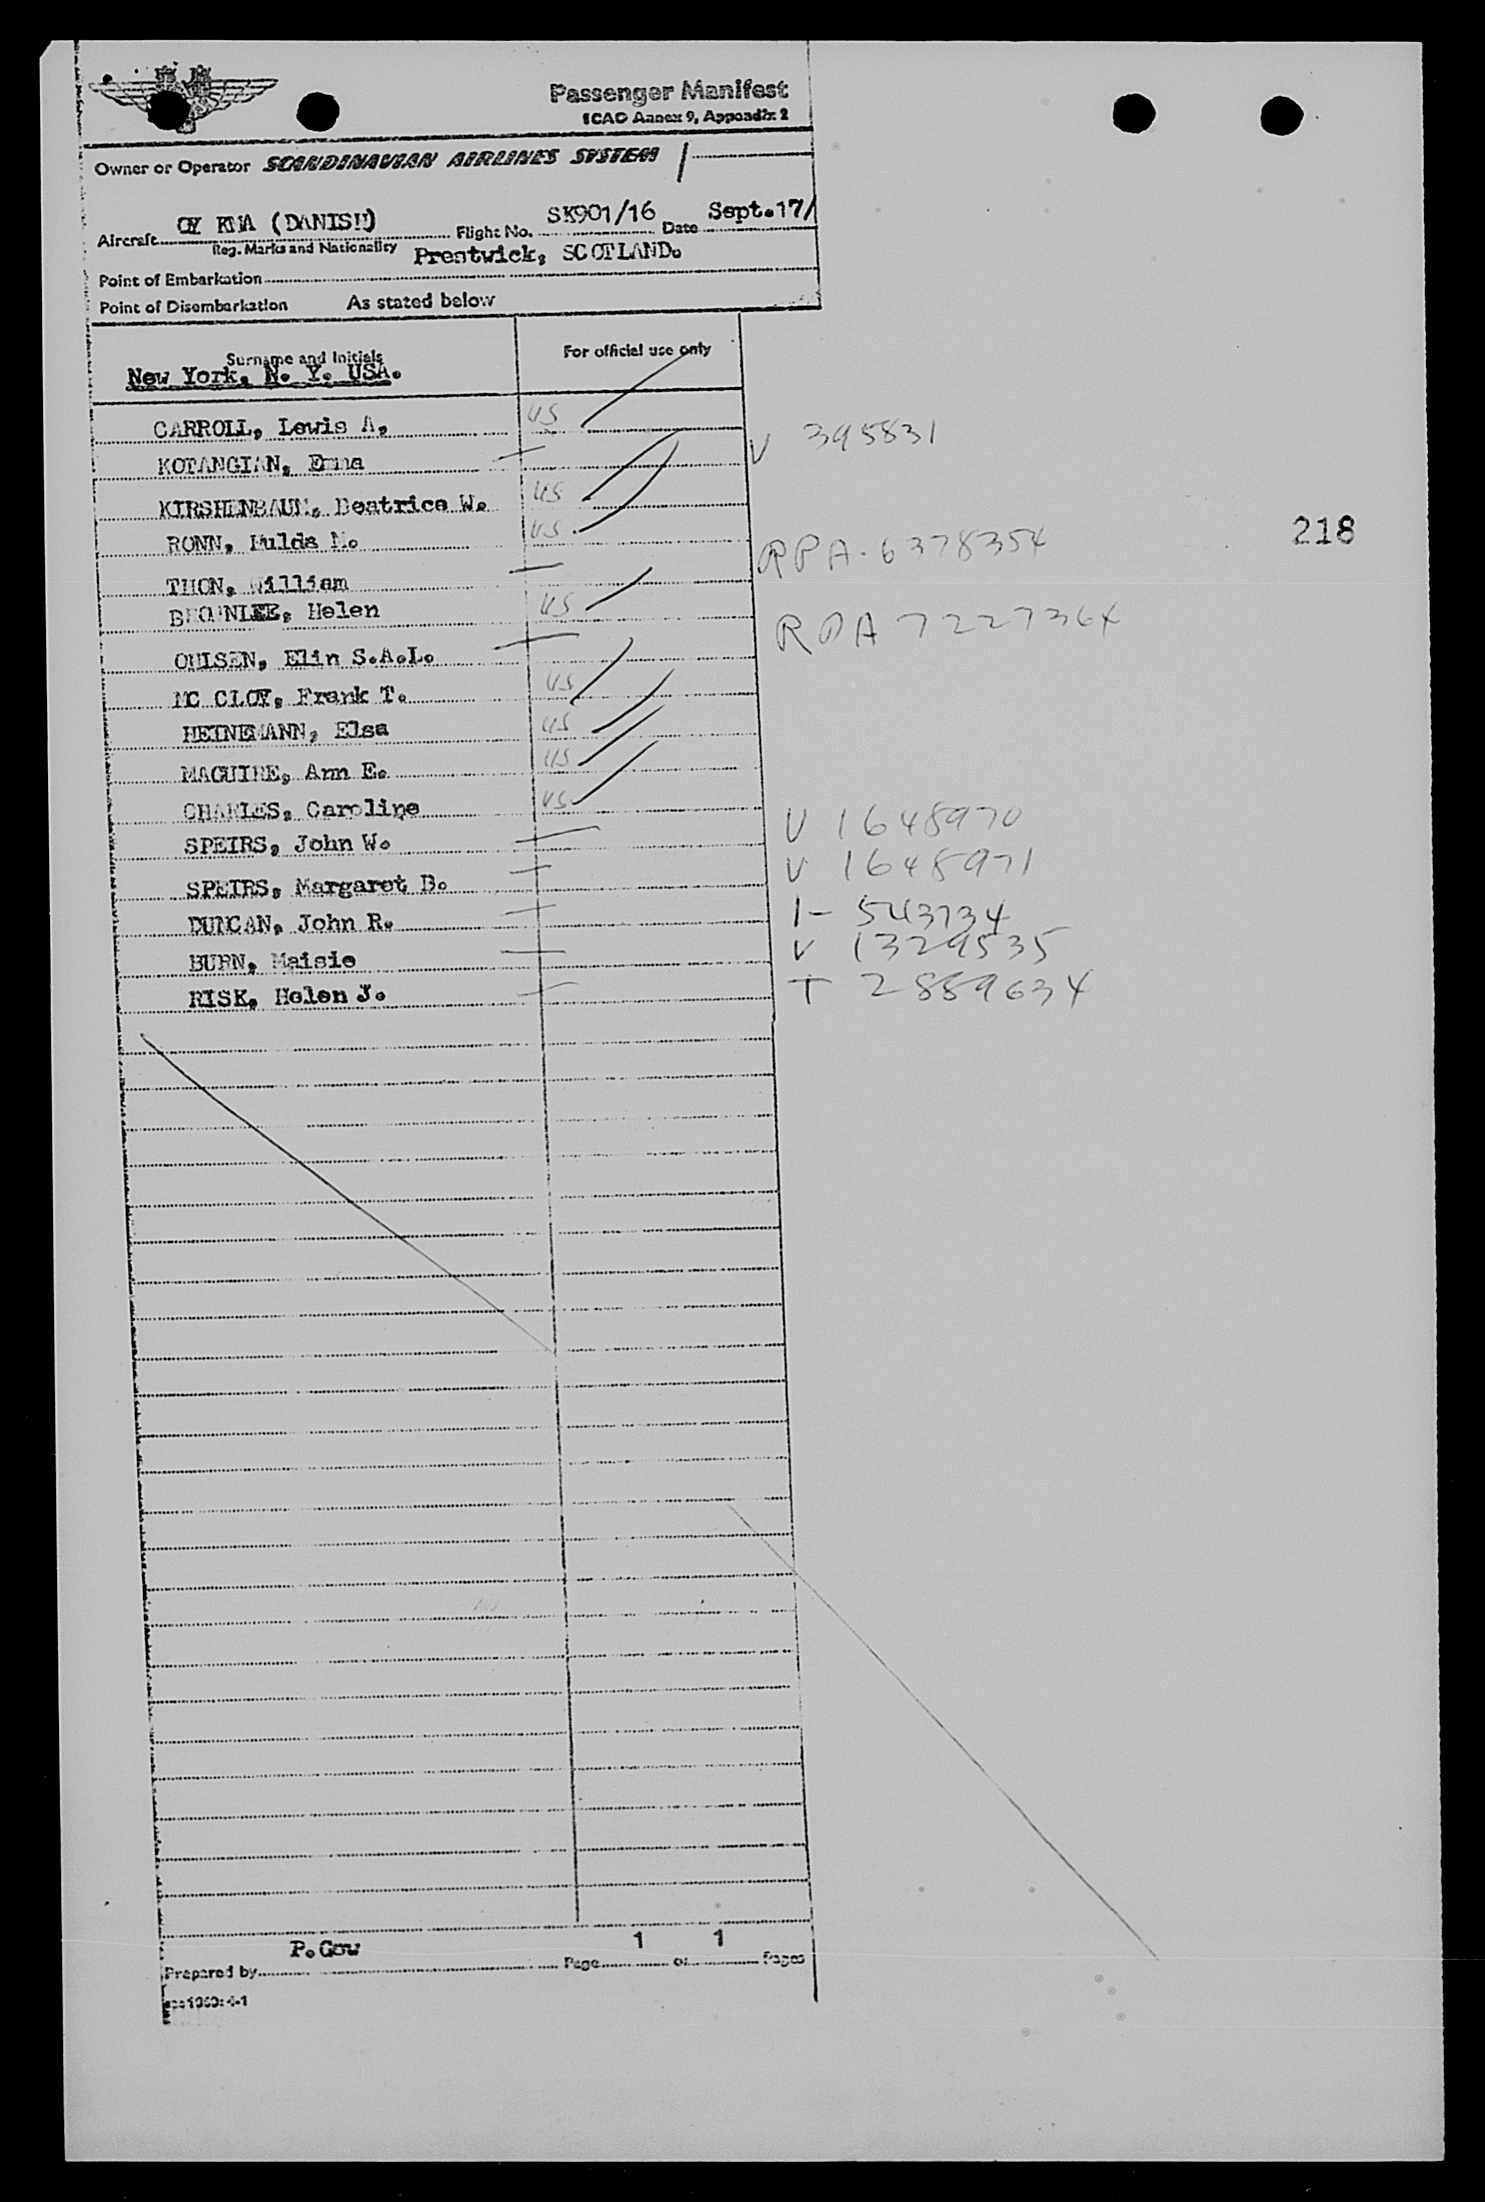 Passenger Manifest
ICAO Annex 9, Appendix 2
Owner or Operator SCANDINAVIAN AIRLINES SYSTEM
Aircraft OY KNA (DANISH) Flight No. SK901/16 Date Sept.17/
Reg. Marks and Nationality
Point of Embarkation Prestwick, SCOTLAND.
Point of Disembarkation As stated below
Surname and Initials For official use only
New York, N. Y. USA.
CARROLL, Lewis A, US
KOTANGIAN, Emma V 395831
KIRSHENBAUM, Beatrice W. US
RONN, Hulda M. US
218
THON, William RPA-6378354
BROWNLEE, Helen US
OHLSEN, Elin S.A.L. RPA 7227364
MC CLOY, Frank T. US
HEINEMANN, Elsa US
MAGUIRE, Ann E. US
CHARLES, Caroline US
SPEIRS, John W. V 1648970
SPEIRS, Margaret B. V 1648971
DUNCAN, John R. I- 543734
BURN, Maisie V 1329535
RISK, Helen J. T 2889634
Prepared by P. Gow Page 1 of 1 Pages